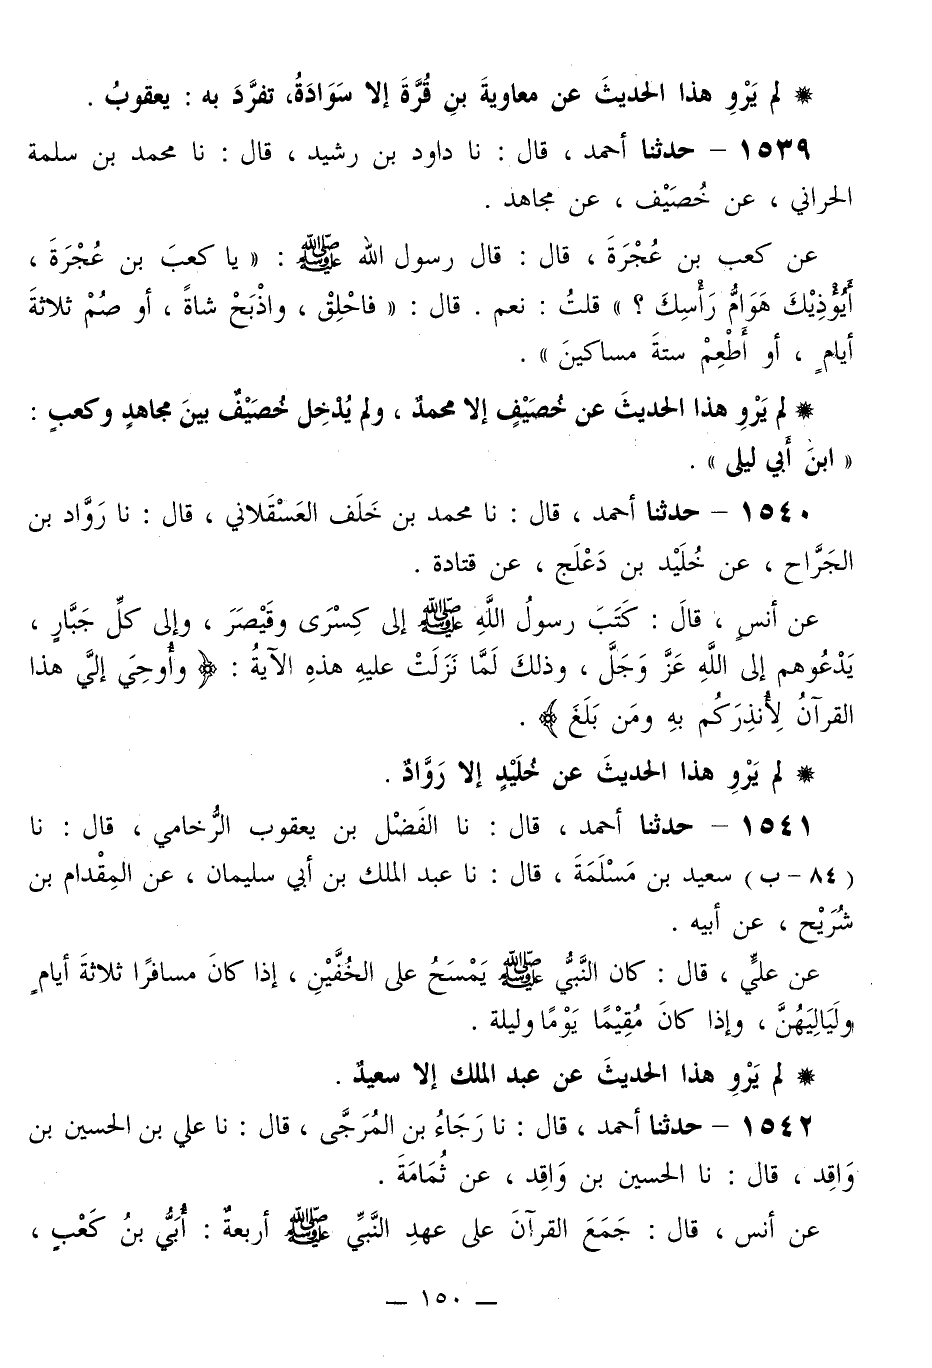 * لم يَرْوِ هذا الحديثَ عن معاويةَ بنِ قُرَّةَ إلا سَوَادَةُ، تفرَّدَ به : يعقوبُ .
١٥٣٩ – حدثنا أحمد ، قال : نا داود بن رشيد ، قال : نا محمد بن سلمة
الحراني ، عن خُصَيْف ، عن مجاهد .
عن كعب بن عُجْرَةَ ، قال : قال رسول الله ﷺ : « يا كعبَ بن عُجْرَةَ ،
أَيُؤْذِيْكَ هَوَامُّ رَأْسِكَ ؟ » قلتُ : نعم . قال : « فاحْلِقْ ، واذْبَحْ شاةً ، أو صُمْ ثلاثةَ
أيامٍ ، أو أَطْعِمْ ستةَ مساكينَ » .
* لم يَرْوِ هذا الحديثَ عن خُصَيْفٍ إلا محمدٌ ، ولم يُدْخِل خُصَيْفٌ بينَ مجاهدٍ وكعبٍ :
« ابنَ أَبي ليلى » .
١٥٤٠ – حدثنا أحمد ، قال : نا محمد بن خَلَف العَسْقَلاني ، قال : نا رَوَّاد بن
الجَرَّاح ، عن خُلَيْد بن دَعْلَج ، عن قتادة .
عن أنسٍ ، قالَ : كَتَبَ رسولُ اللَّهِ ﷺ إلى كِسْرَى وقَيْصَرَ ، وإلى كلِّ جَبَّارٍ ،
يَدْعُوهم إلى اللَّهِ عَزَّ وَجَلَّ ، وذلكَ لَمَّا نَزَلَتْ عليهِ هذهِ الآيةُ : ﴿ وأُوحِيَ إليَّ هذا
القرآنُ لِأُنذِرَكُم بهِ ومَن بَلَغَ ﴾ .
* لم يَرْوِ هذا الحديثَ عن خُلَيْدٍ إلا رَوَّادٌ .
١٥٤١ – حدثنا أحمد ، قال : نا الفَضْل بن يعقوب الرُّخامي ، قال : نا
( ٨٤ – ب ) سعيد بن مَسْلَمَةَ ، قال : نا عبد الملك بن أبي سليمان ، عن المِقْدام بن
شُرَيْح ، عن أبيه .
عن عليٍّ ، قال : كان النَّبيُّ ﷺ يَمْسَحُ على الخُفَّيْنِ ، إذا كانَ مسافرًا ثلاثةَ أيامٍ
ولَيَالِيَهُنَّ ، وإذا كانَ مُقِيْمًا يَوْمًا وليلة .
* لم يَرْوِ هذا الحديثَ عن عبد الملك إلا سعيدٌ .
١٥٤٢ – حدثنا أحمد ، قال : نا رَجَاءُ بن المُرَجَّى ، قال : نا علي بن الحسين بن
وَاقِد ، قال : نا الحسين بن وَاقِد ، عن ثُمَامَةَ .
عن أنس ، قال : جَمَعَ القرآنَ على عهدِ النَّبيِّ ﷺ أربعةٌ : أُبَيُّ بنُ كَعْبٍ ،
— ١٥٠ —